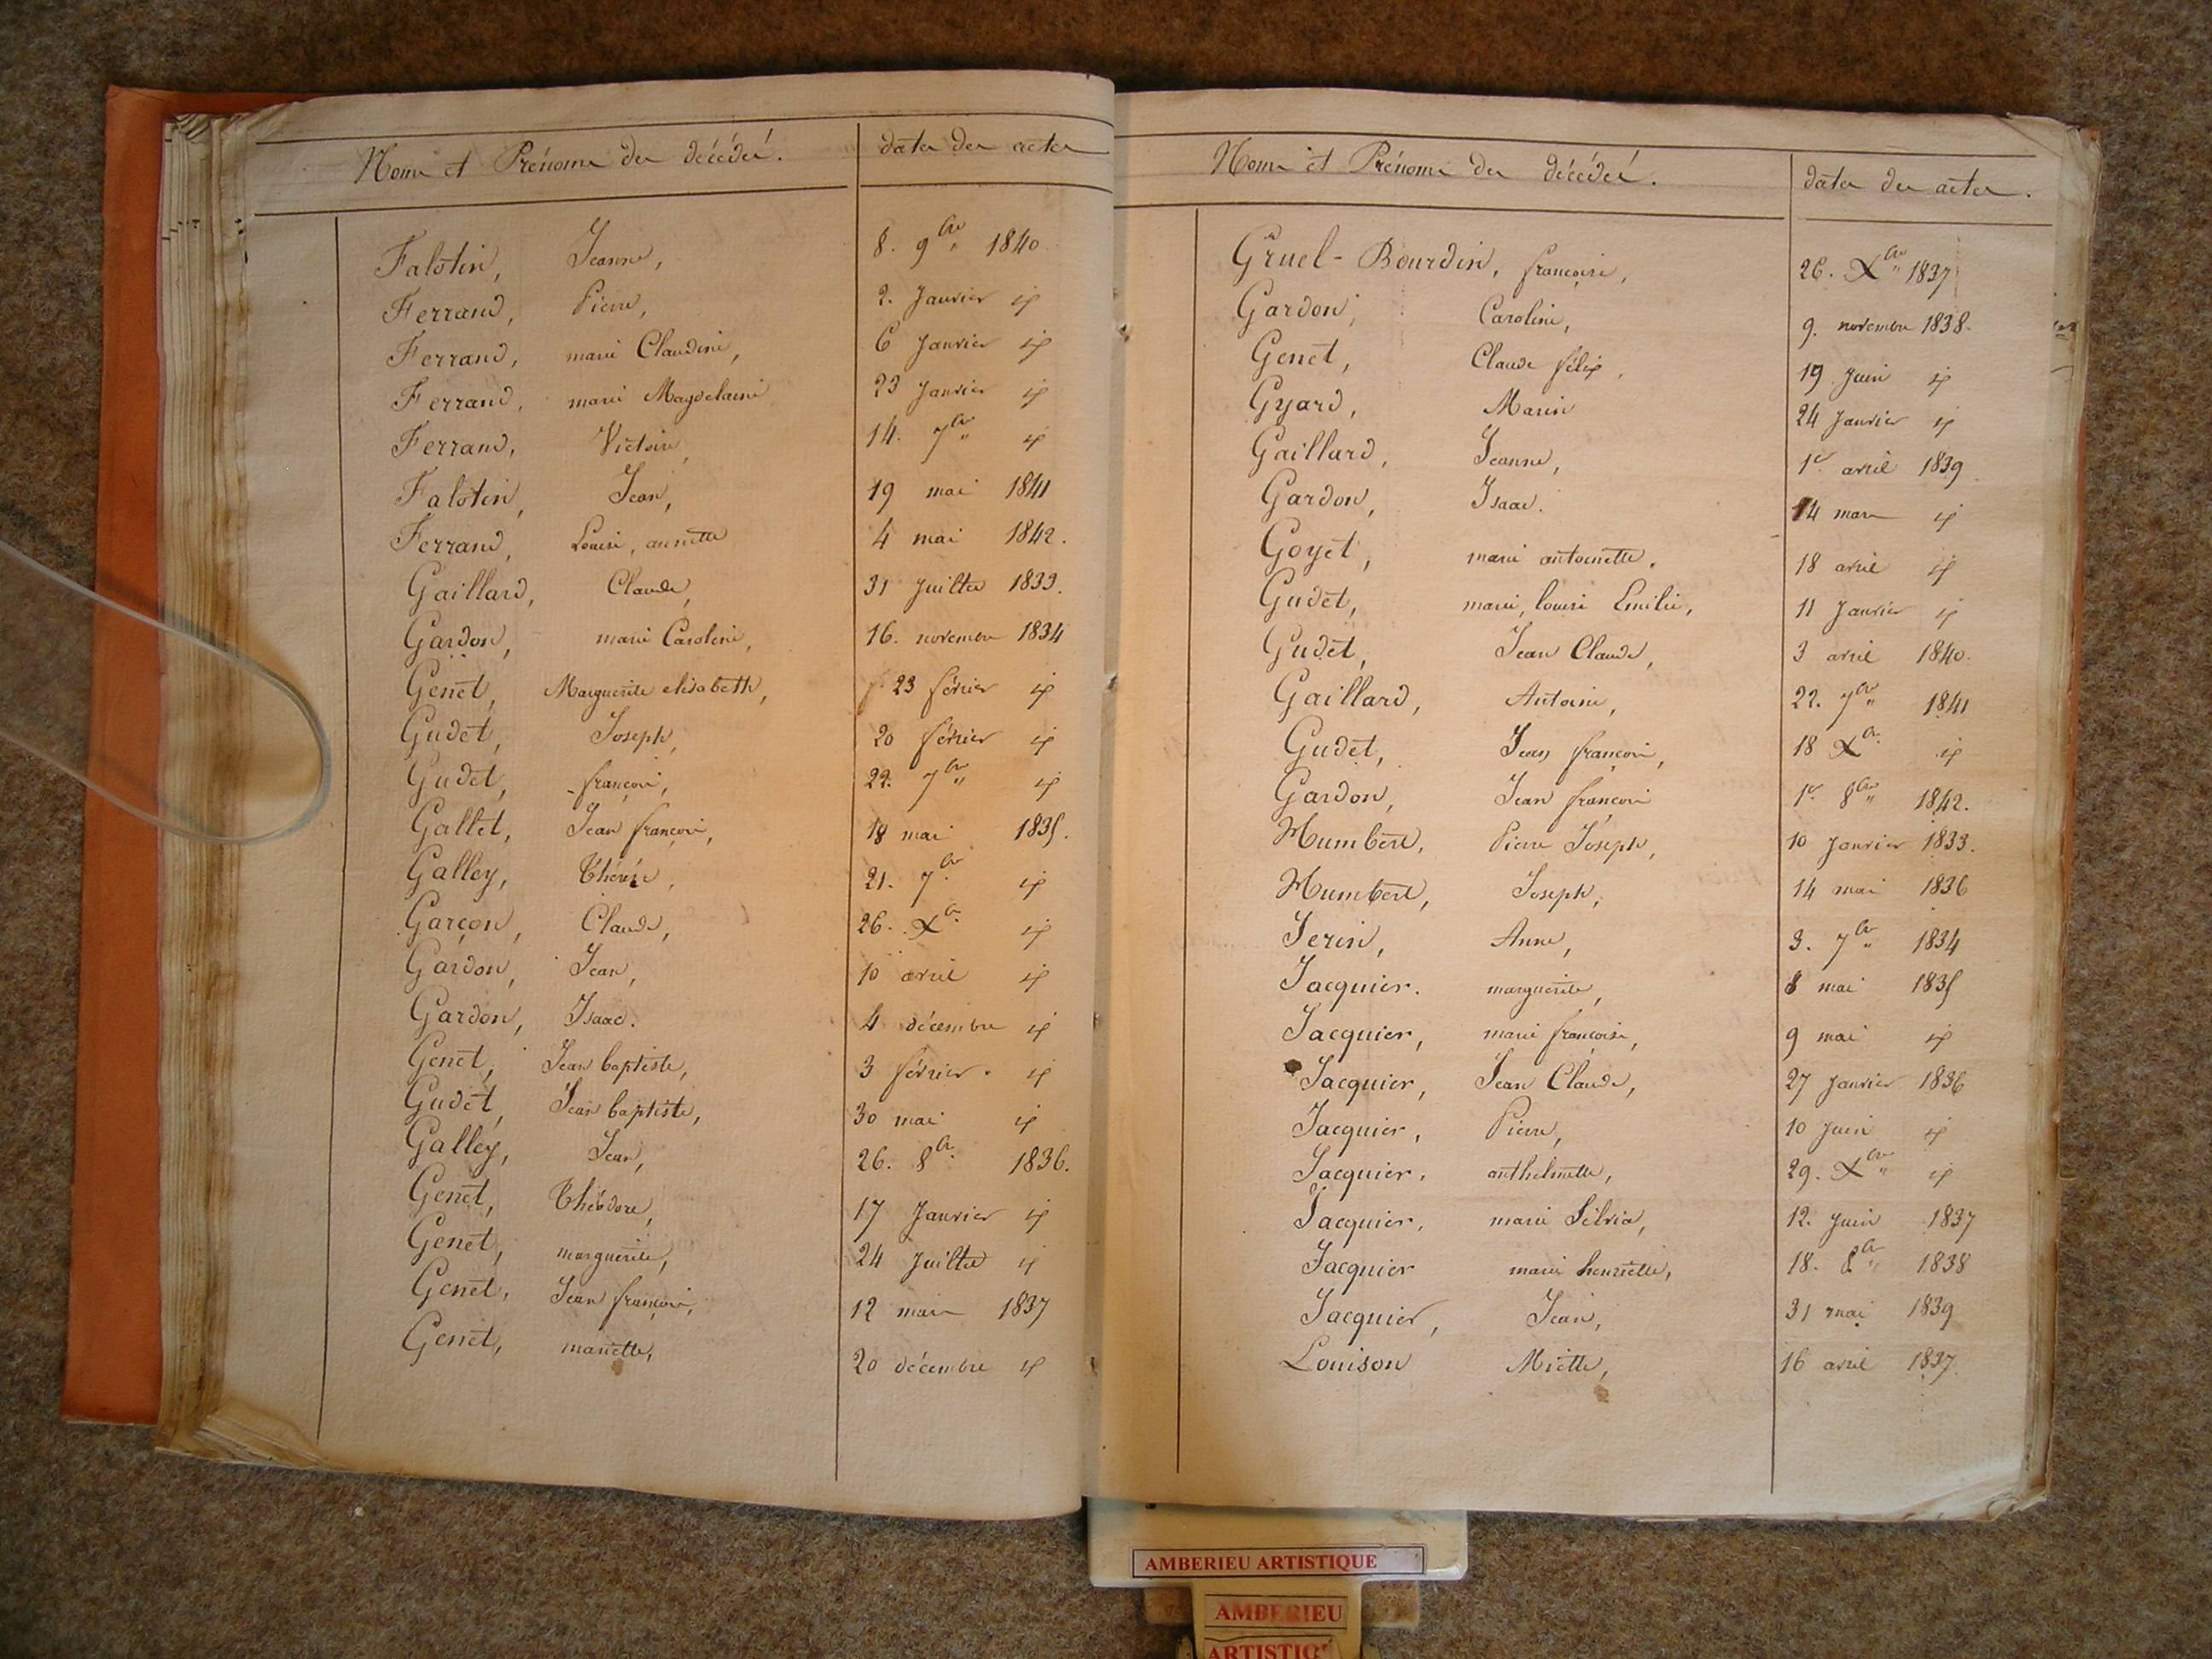 Noms et Prénoms des décédés. dates des actes
Falotin, Jeanne, 8. 9bre 1840
Ferrand, Pierre, 2. Janvier id
Ferrand, marie Claudine, 6 Janvier id
Ferrand, marie Magdelaine 23 Janvier id
Ferrand, Victoire, 14. 7bre id
Falotin, Jean, 19 mai 1841
Ferrand, Louise, annette 4 mai 1842.
Gaillard, Claude, 31 Juillet 1833.
Gardon, marie Caroline, 16. novembre 1834
Genet, Marguerite elisabeth, 23 février id
Gudet, Joseph, 20 février id
Gudet, françois, 22. 7bre id
Gallet, Jean françois, 18 mai 1835.
Galley, Thérèse, 21. 7bre id
Garçon, Claude, 26. Xbre id
Gardon, Jean, 10 avril id
Gardon, Isaac. 4 décembre id
Genet, Jean baptiste, 3 février. id
Gudet, Jean baptiste, 30 mai id
Galley, Jean, 26. 8bre 1836.
Genet, Théodore, 17 Janvier id
Genet, marguerite, 24 Juillet id
Genet, Jean françois, 12 mars 1837
Genet, mariette, 20 décembre id
Noms et Prénoms des décédés. dates des actes.
Gruel-Bourdin, françoise, 26. Xbre 1837
Gardon, Caroline, 9. novembre 1838.
Genet, Claude félix, 19 Juin id
Gyard, Marin 24 Janvier id
Gaillard, Jeanne, 1er avril 1839
Gardon, Isaac. 14 mars id
Goyet, marie antoinette. 18 avril id
Gudet, marie, louise Emilie, 11 Janvier id
Gudet, Jean Claude, 3 avril 1840.
Gaillard, Antoine, 22. 7bre 1841
Gudet, Jean françois, 18 Xbre id
Gardon, Jean françois 1er 8bre 1842.
Humbert, Pierre Joseph, 10 Janvier 1833.
Humbert, Joseph, 14 mai 1836
Jerin, Anne, 3. 7bre 1834
Jacquier. marguerite, 8 mai 1835
Jacquier, marie françoise, 9 mai id
Jacquier, Jean Claude, 27 Janvier 1836
Jacquier, Pierre, 10 Juin id
Jacquier, anthelmette, 29. Xbre id
Jacquier, marie Silvia, 12. Juin 1837
Jacquier marie henriette, 18. 8bre 1838
Jacquier, Jean, 31 mai 1839
Louison Miette, 16 avril 1837
AMBERIEU ARTISTIQUE
AMBERIEU